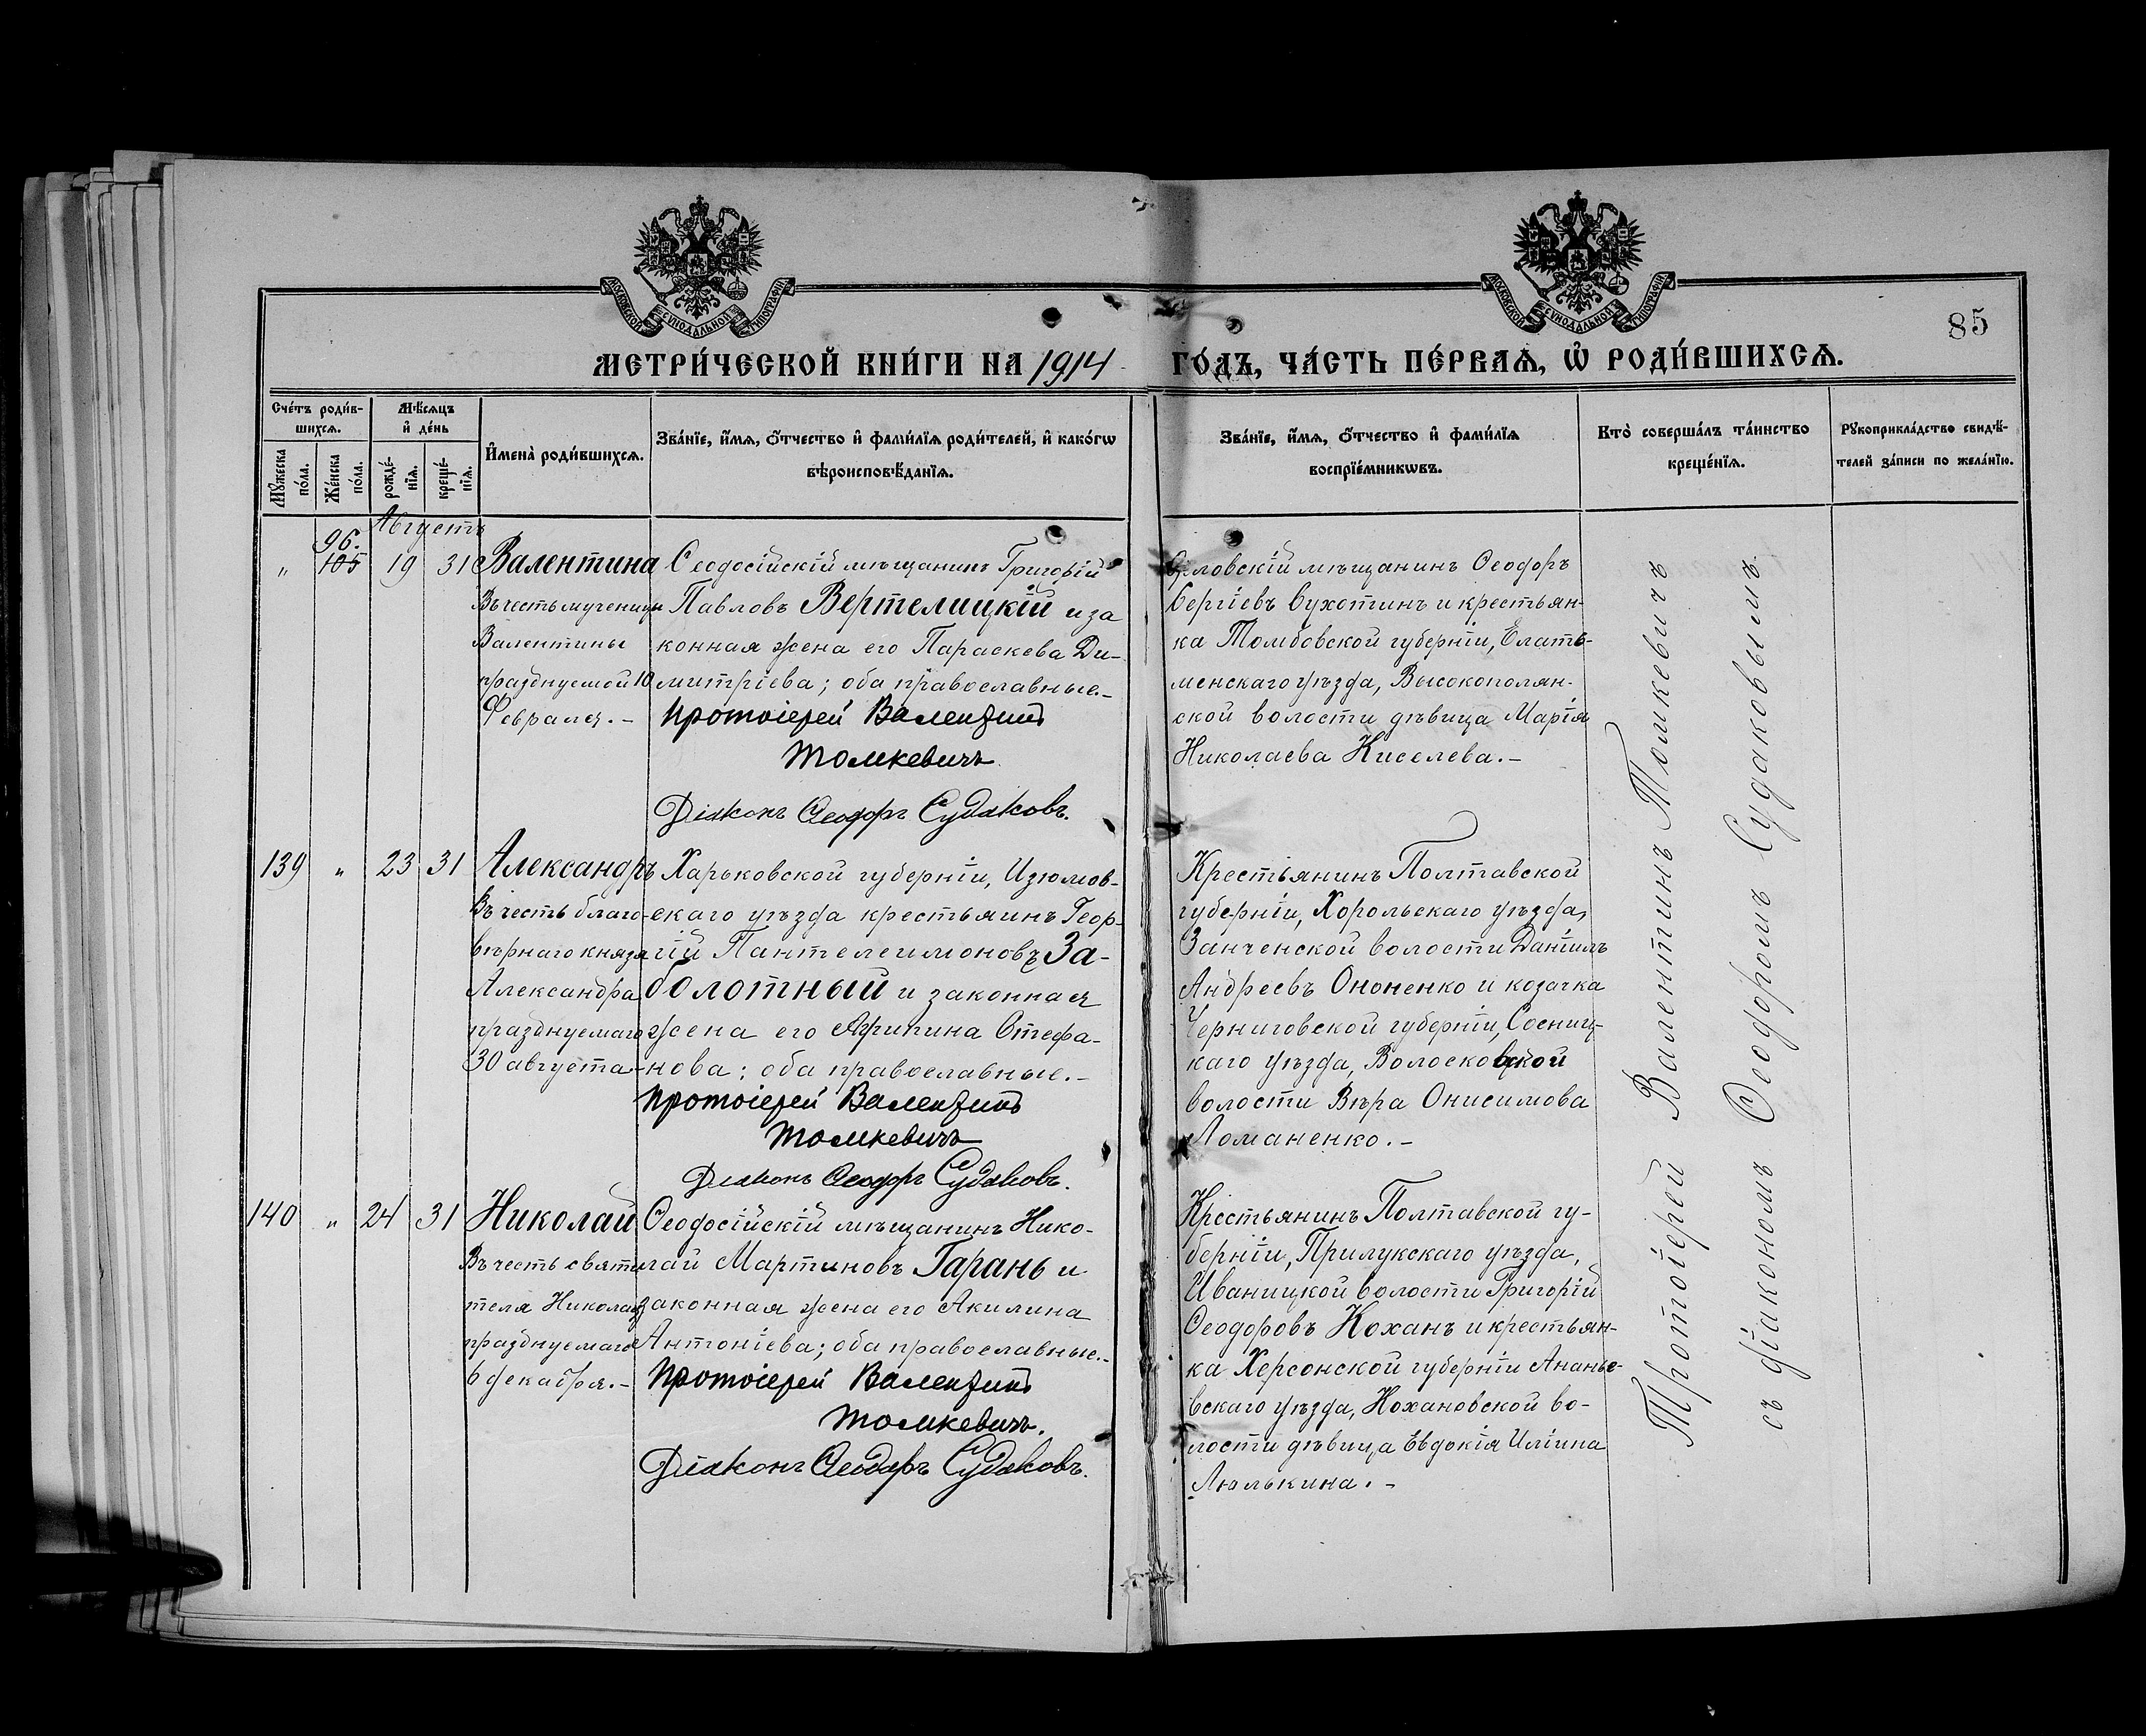 МОСКОВСКОЙ СѴНОДАЛЬНОЙ ТИПОГРАФІИ
МОСКОВСКОЙ СѴНОДАЛЬНОЙ ТИПОГРАФІИ
85
МЕТРИ́ЧЕСКОЙ КНИ́ГИ НА 1914 ГО́ДЪ, ЧА́СТЬ ПЕ́РВАѦ, Ѡ҆ РОДИ́ВШИХСѦ.
Счéтъ роди́в-
шихсѧ.
Мꙋ́жеска
по́ла.
Же́нска
по́ла.
Мѣ́сѧцъ
и҆ де́нь
рожде́-
нїѧ.
креще́-
нїѧ.
И҆мена̀ роди́вшихсѧ.
Зва́нїе, и҆́мѧ, ѻ҆́тчество и҆ фами́лїѧ роди́телей, и҆ како́гѡ
вѣроисповѣ́данїѧ.
Зва́нїе, и҆́мѧ, ѻ҆́тчество и҆ фами́лїѧ
воспрїе́мникѡвъ.
Кто̀ соверша́лъ та́инство
креще́нїѧ.
Рꙋкоприкла́дство свидѣ́-
телей за́писи по жела́нїю.
Августъ
96.
" 105 19 31
Валентина
Въ честь мученицы
Валентины
празднуемой 10
Февраля.-
Ѳеодосійскій мѣщанинъ Григорій
Павловъ Вертелицкій и за
конная жена его Параскева Ди-
митріева; оба православные.-
Протоіерей Валентинъ
Томкевичъ
Діаконъ Ѳеодоръ Судаковъ.
Орловскій мѣщанинъ Ѳеодоръ
Сергіевъ Сухотинъ и крестьян-
ка Томбовской губерніи, Елать-
менскаго уѣзда, Высокополян-
ской волости дѣвица Марія
Николаева Киселева.-
139 " 23 31
Александръ
Въ честь благо-
вѣрнаго князя
Александра
празднуемаго
30 августа-
Харьковской губерніи, Изюмов-
скаго уѣзда крестьянинъ Геор-
гій Пантелеимоновъ За-
болотный и законная
жена его Агрипина Стефа-
нова; оба православные.-
Протоіерей Валентинъ
Томкевичъ
Діаконъ Ѳеодоръ Судаковъ.
Крестьянинъ Полтавской
губерніи, Хорольскаго уѣзда,
Занченской волости Даніилъ
Андреевъ Ононенко и козачка
Черниговской губерніи, Сосниц-
каго уѣзда, Волосковской
волости Вѣра Онисимова
Ломаненко.-
140 " 24 31
Николай
Въ честь святи
теля Николая
празднуемаго
6 декабря.-
Ѳеодосійскій мѣщанинъ Нико-
лай Мартиновъ Гарань и
законная жена его Акилина
Антоніева; оба православные.-
Протоіерей Валентинъ
Томкевичъ.
Діаконъ Ѳеодоръ Судаковъ.
Крестьянинъ Полтавской гу-
берніи, Прилукскаго уѣзда,
Иваницкой волости Григорій
Ѳеодоровъ Коханъ и крестьян-
ка Херсонской губерніи Ананье-
вскаго уѣзда, Кохановской во-
лости дѣвица Евдокія Иліина
Люлькина.-
Протоіерей Валентинъ Томкевичъ
съ діакономъ Ѳеодоромъ Судаковымъ.